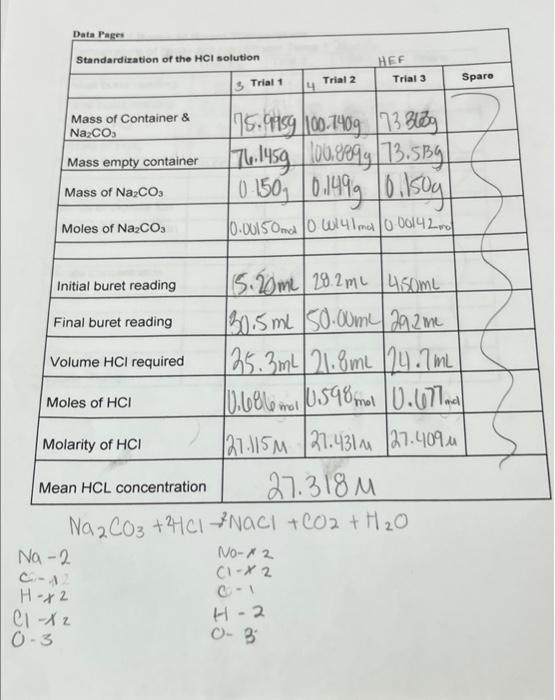 Data Pages
Standardization of the HCl solution HEF
3 Trial 1 4 Trial 2 Trial 3 Spare
Mass of Container & Na₂CO₃ 75.995g 100.740g 73.363g
Mass empty container 76.145g 100.889g 73.513g
Mass of Na₂CO₃ 0.150g 0.149g 0.150g
Moles of Na₂CO₃ 0.00150mol 0.00141mol 0.00142mol
Initial buret reading 5.20mL 28.2mL 4.50mL
Final buret reading 30.5mL 50.00mL 29.2mL
Volume HCl required 25.3mL 21.8mL 24.7mL
Moles of HCl 0.686mol 0.598mol 0.677mol
Molarity of HCl 27.115M 27.431M 27.409M
Mean HCL concentration 27.318M
Na₂CO₃ + 2HCl → 2NaCl + CO₂ + H₂O
Na - 2 Na - 2
C - 1 Cl - 2
H - 2 C - 1
Cl - 2 H - 2
O - 3 O - 3